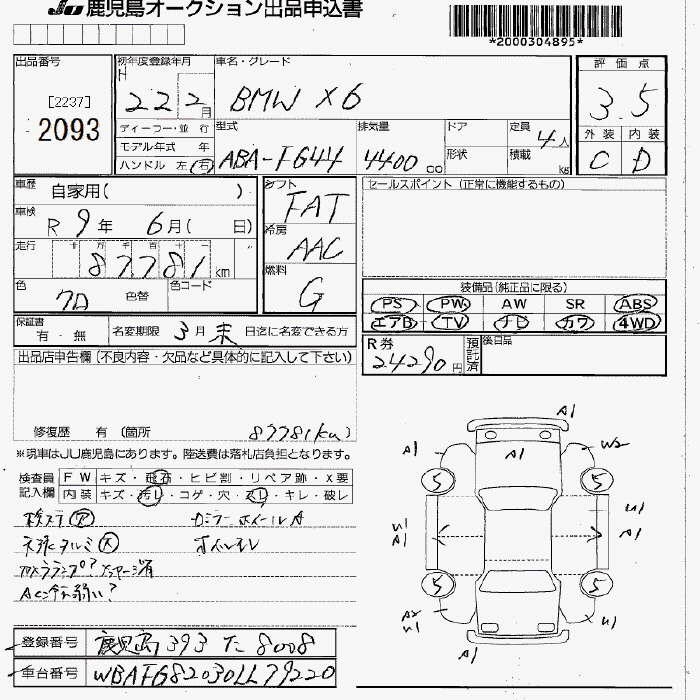 JU 鹿児島オークション出品申込書
*2000304895*
出品番号
[2237]
2093
初年度登録年月
H 22 2月
車名・グレード
BMW X6
評価点
3.5
ディーラー・並行
モデル年式 年
ハンドル 左 右
型式
ABA-FG44
排気量
4400 cc
ドア
形状
定員
4人
積載
kg
外装 内装
C D
車歴
自家用( )
車検
R 9年 6月( 日)
走行
十 万 千 百 十 一
87781 km
色
クロ
色替
色コード
シフト
FAT
冷房
AAC
燃料
G
セールスポイント (正常に機能するもの)
装備品(純正品に限る)
PS PW AW SR ABS
エアB TV ナビ カワ 4WD
保証書
有・無
名変期限 3月 末 日迄に名変できる方
R券
24290円
預託済
後日品
出品店申告欄(不良内容・欠品など具体的に記入して下さい)
修復歴 有 (箇所 87781km)
※現車はJU鹿児島にあります。陸送費は落札店負担となります。
検査員
記入欄
FW キズ・飛石・ヒビ割・リペア跡・X要
内装 キズ・汚レ・コゲ・穴・スレ・キレ・破レ
AC冷え弱い?
登録番号 鹿児島 393 た 8008
車台番号 WBAFG82030LL79220
A1
A1
W2
A1
5 5
U1
A1
U1
A1
5 5
A2
U1
U1
A1